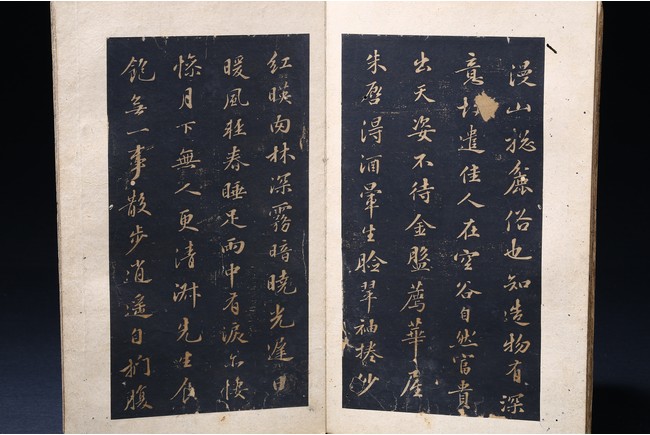 漫山揔麤俗也知造物有深
意遣佳人在空谷自然富貴
出天姿不待金盤薦華屋
朱脣得酒暈生臉翠袖捲紗
紅暎肉林深霧暗曉光遲日
暖風輕春睡足雨中有淚亦悽
慘月下無人更清淑先生食
飽無一事散步逍遙自捫腹